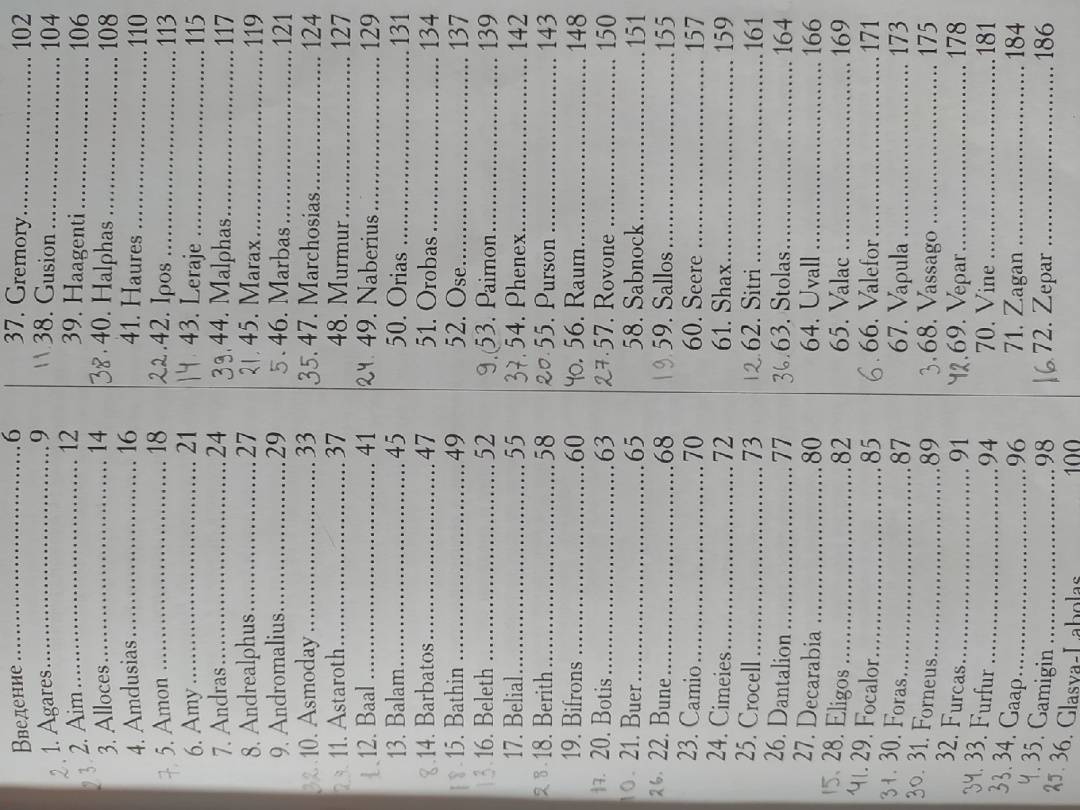 Введение 6
2. 1. Agares 9
23. 2. Aim 12
3. Alloces 14
4. Amdusias 16
7. 5. Amon 18
6. Amy 21
7. Andras 24
8. Andrealphus 27
9. Andromalius 29
32. 10. Asmoday 33
29. 11. Astaroth 37
1. 12. Baal 41
13. Balam 45
8. 14. Barbatos 47
18. 15. Bathin 49
13. 16. Beleth 52
17. Belial 55
28. 18. Berith 58
19. Bifrons 60
17. 20. Botis 63
10. 21. Buer 65
26. 22. Bune 68
23. Camio 70
24. Cimeies 72
25. Crocell 73
26. Dantalion 77
27. Decarabia 80
15. 28. Eligos 82
41. 29. Focalor 85
31. 30. Foras 87
30. 31. Forneus 89
32. Furcas 91
34. 33. Furfur 94
33. 34. Gaap 96
4. 35. Gamigin 98
25. 36. Glasya-Labolas 100
37. Gremory 102
11. 38. Gusion 104
39. Haagenti 106
38. 40. Halphas 108
41. Haures 110
22. 42. Ipos 113
14. 43. Leraje 115
39. 44. Malphas 117
21. 45. Marax 119
5. 46. Marbas 121
35. 47. Marchosias 124
48. Murmur 127
24. 49. Naberius 129
50. Orias 131
51. Orobas 134
52. Ose 137
9. (53. Paimon 139
37. 54. Phenex 142
20. 55. Purson 143
40. 56. Raum 148
27. 57. Rovone 150
58. Sabnock 151
19. 59. Sallos 155
60. Seere 157
61. Shax 159
12. 62. Sitri 161
36. 63. Stolas 164
64. Uvall 166
65. Valac 169
6. 66. Valefor 171
67. Vapula 173
3. 68. Vassago 175
42. 69. Vepar 178
70. Vine 181
71. Zagan 184
16. 72. Zepar 186